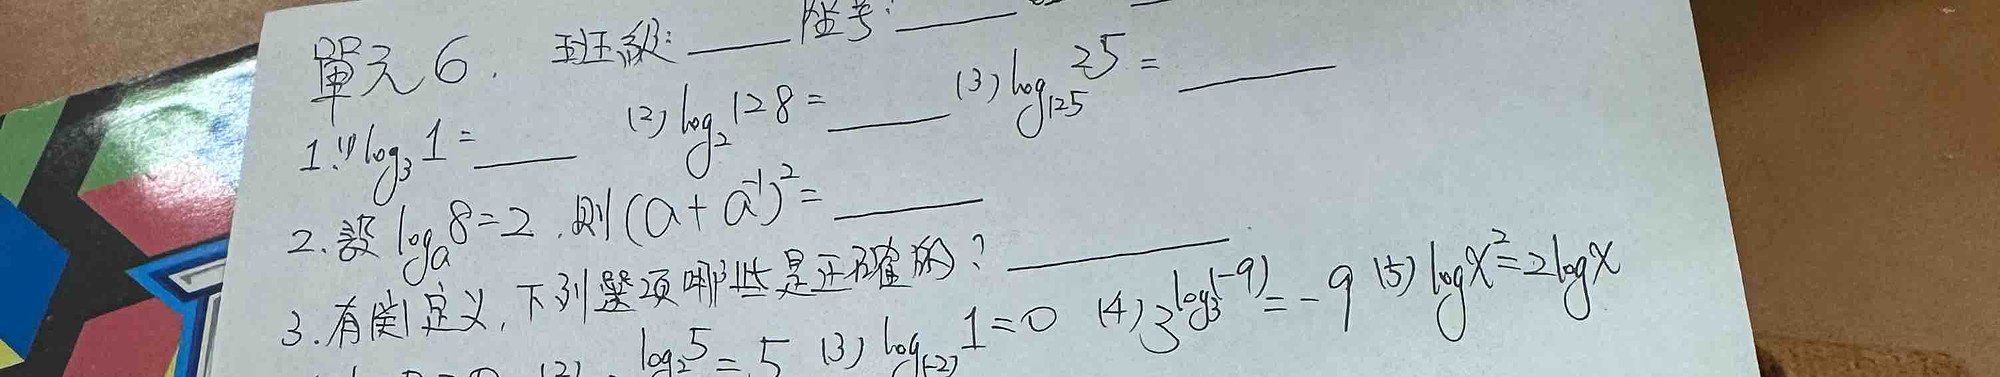 單元6. 班級:____ 座号:____
1.(1) log₃1=____ (2) log₂128=____ (3) log₁₂₅25=____
2. 設 logₐ8=2, 则 (a+a⁻¹)²=____
3. 有関定义, 下列選项哪些是正確的? ____
log₂5=5 (3) log₍₋₂₎1=0 (4) 3^log₃(-9)=-9 (5) logx²=2logx